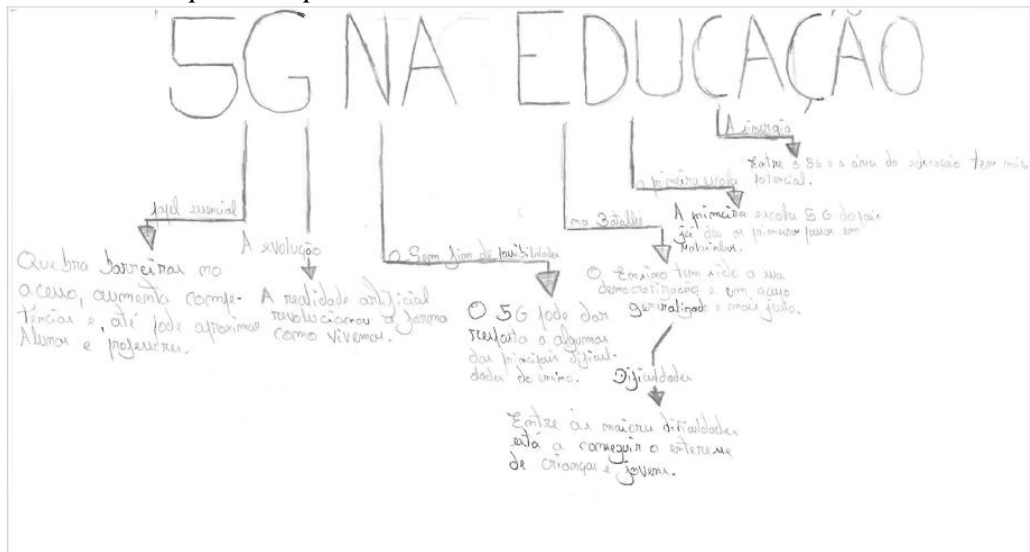 5G NA EDUCAÇÃO
papel essencial
Quebra barreiras no
acesso, aumenta compe-
tências e, até pode aproximar
Alunos e professores.
A evolução
A realidade artificial
revolucionou a forma
como vivemos.
O Sem fim de possibilidades
O 5G pode dar
resposta a algumas
das principais dificul-
dades do ensino.
na Batalha
O Ensino tem sido a sua
democratização e um acesso
generalizado e mais justo.
Dificuldades
Entre as maiores dificuldades
está a conseguir o enteresse
de crianças e jovens.
a primeira escola
A primeira escola 5G do país
já deu os primeiros passos em
Matosinhos.
A sinergia
Entre o 5G e a área da educação tem mais
potencial.